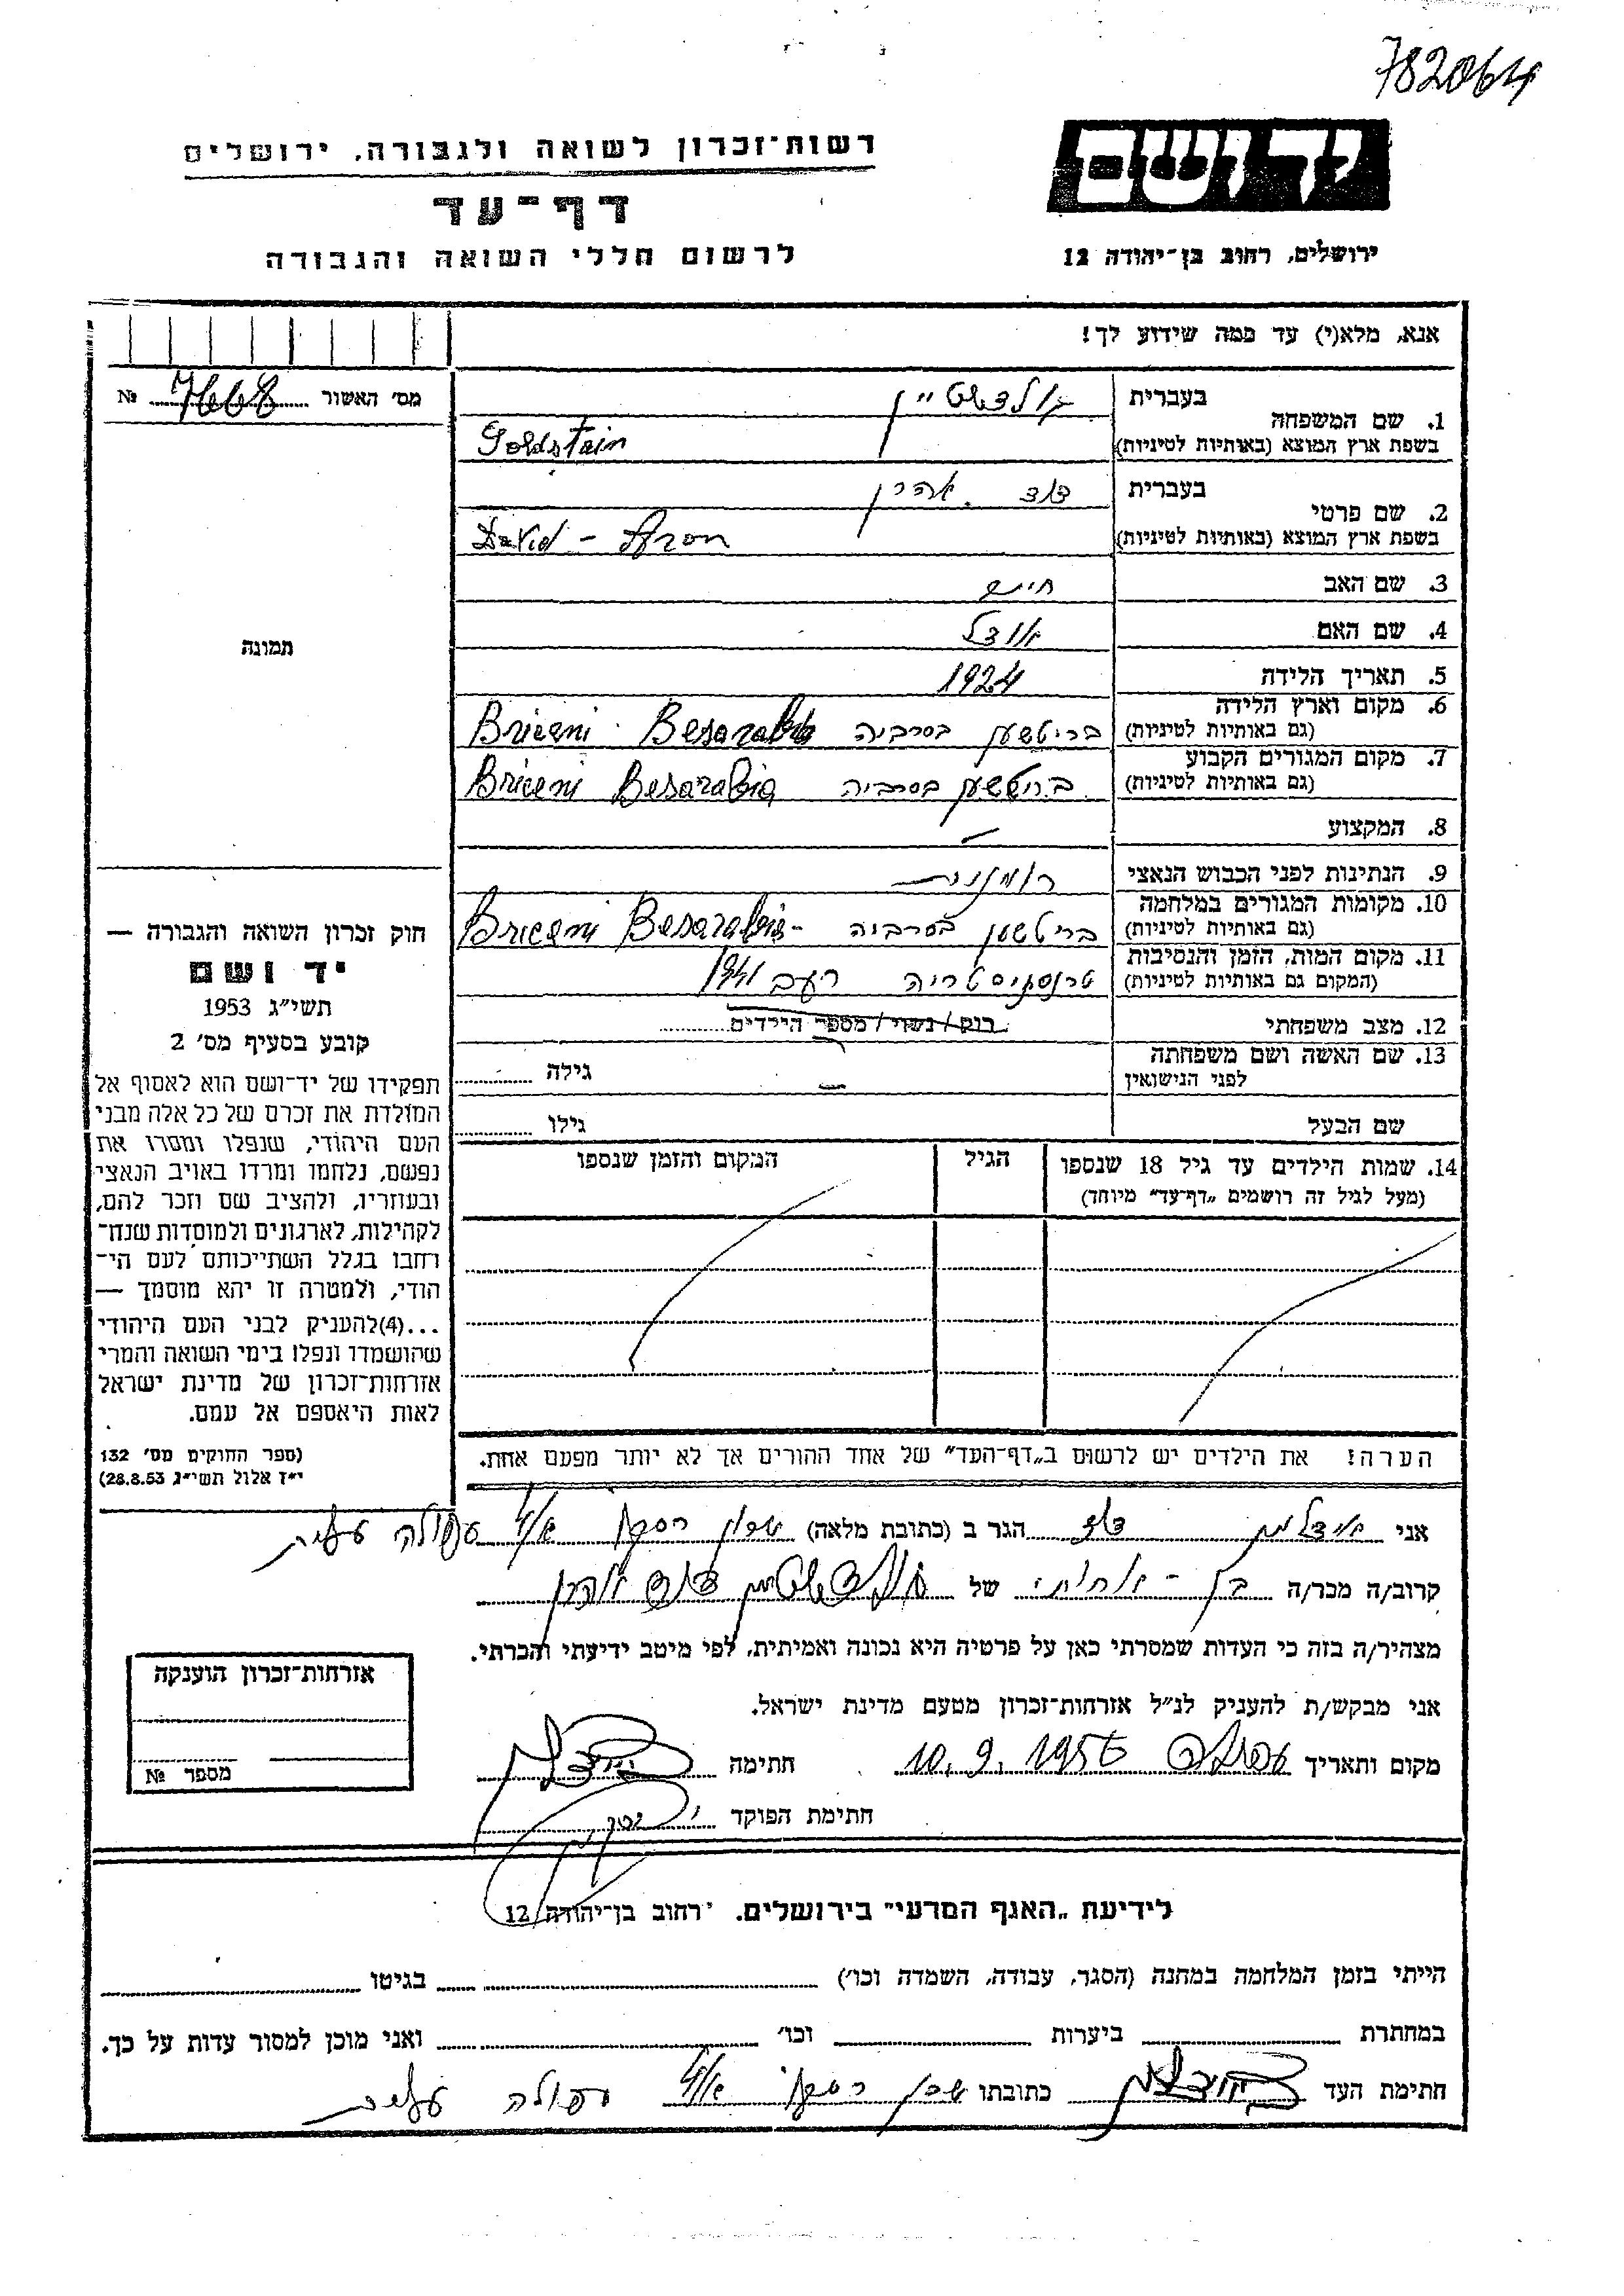 782064
יד ושם
ירושלים, רחוב בן־יהודה 12
רשות־זכרון לשואה ולגבורה, ירושלים
דף־עד
לרשום חללי השואה והגבורה
אנא, מלא(י) עד כמה שידוע לך!
מס׳ האשור 7668 №
1. שם המשפחה בעברית גולדשטיין
בשפת ארץ המוצא (באותיות לטיניות) Goldstain
2. שם פרטי בעברית דוד אהרן
בשפת ארץ המוצא (באותיות לטיניות) David - Aron
3. שם האב חיים
4. שם האם אידל
5. תאריך הלידה 1924
6. מקום וארץ הלידה (גם באותיות לטיניות) בריטשען בסרביה Briceni Besarabia
7. מקום המגורים הקבוע (גם באותיות לטיניות) בריטשען בסרביה Briceni Besarabia
8. המקצוע –
9. הנתינות לפני הכבוש הנאצי רומנית
10. מקומות המגורים במלחמה (גם באותיות לטיניות) בריטשען בסרביה - Briceni Besarabia
11. מקום המות, הזמן והנסיבות (המקום גם באותיות לטיניות) טרנסניסטריה רעב 1941
12. מצב משפחתי רוק/נשוי/מספר הילדים
13. שם האשה ושם משפחתה לפני הנישואין – גילה
שם הבעל גילו
14. שמות הילדים עד גיל 18 שנספו (מעל לגיל זה רושמים „דף־עד״ מיוחד) הגיל המקום והזמן שנספו
הערה! את הילדים יש לרשום ב„דף־העד״ של אחד ההורים אך לא יותר מפעם אחת.
תמונה
חוק זכרון השואה והגבורה —
יד ושם
תשי״ג 1953
קובע בסעיף מס׳ 2
תפקידו של יד־ושם הוא לאסוף אל
המולדת את זכרם של כל אלה מבני
העם היהודי, שנפלו ומסרו את
נפשם, נלחמו ומרדו באויב הנאצי
ובעוזריו, ולהציב שם וזכר להם,
לקהילות, לארגונים ולמוסדות שנח־
רחבו בגלל השתייכותם לעם הי־
הודי, ולמטרה זו יהא מוסמך —
...(4)להעניק לבני העם היהודי
שהושמדו ונפלו בימי השואה והמרי
אזרחות־זכרון של מדינת ישראל
לאות היאספם אל עמם.
(ספר החוקים מס׳ 132
י״ז אלול תשי״ג 28.8.53)
אני דוד הגר ב (כתובת מלאה) שכון עפולה עלית
קרוב/ה מכר/ה בן - אחותי של גולדשטיין דוד אהרן
מצהיר/ה בזה כי העדות שמסרתי כאן על פרטיה היא נכונה ואמיתית, לפי מיטב ידיעתי והכרתי.
אני מבקש/ת להעניק לנ״ל אזרחות־זכרון מטעם מדינת ישראל.
מקום ותאריך עפולה 10.9.1956 חתימה
חתימת הפוקד
אזרחות־זכרון הוענקה
מספר №
לידיעת „האגף המדעי״ בירושלים. רחוב בן־יהודה 12
הייתי בזמן המלחמה במחנה (הסגר, עבודה, השמדה וכו׳) בגיטו
במחתרת ביערות וכו׳ ואני מוכן למסור עדות על כך.
חתימת העד כתובתו שכון עפולה עלית